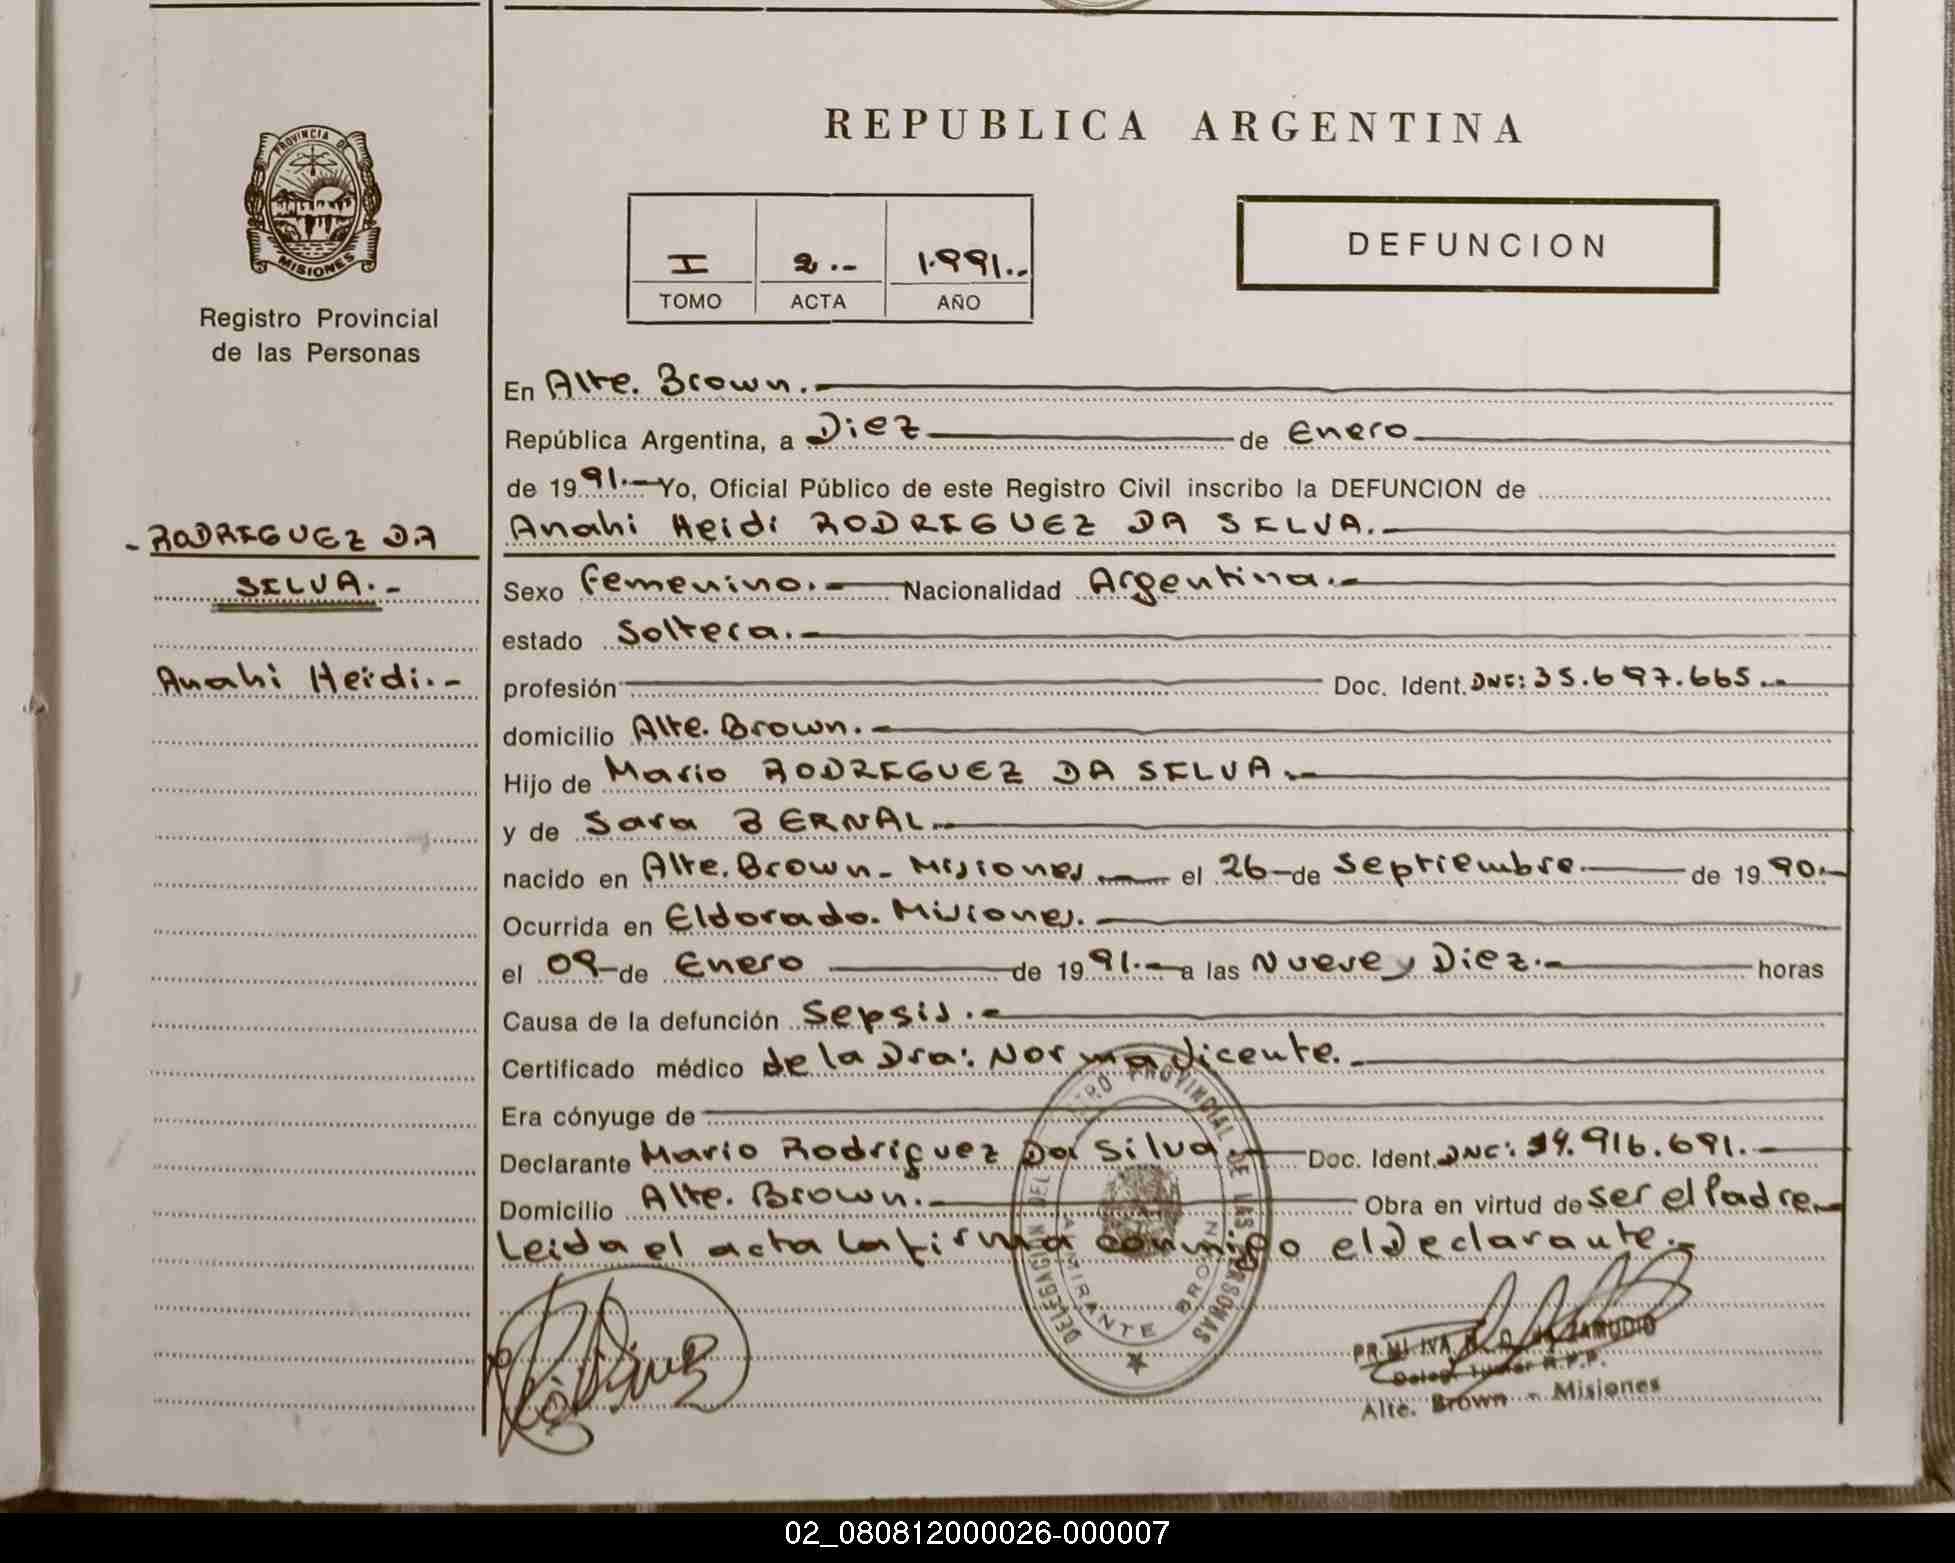 REPUBLICA ARGENTINA
PROVINCIA DE
MISIONES
Registro Provincial
de las Personas
I 2.- 1.991.-
TOMO ACTA AÑO
DEFUNCION
En Alte. Brown.-
República Argentina, a Diez de Enero
de 1991.- Yo, Oficial Público de este Registro Civil inscribo la DEFUNCION de
Anahi Heidi RODRIGUEZ DA SILVA.-
- RODRIGUEZ DA
SILVA.-
Anahi Heidi.-
Sexo Femenino.- Nacionalidad Argentina.-
estado Soltera.-
profesión Doc. Ident. DNI: 35.697.665.-
domicilio Alte. Brown.-
Hijo de Mario RODRIGUEZ DA SILVA.-
y de Sara BERNAL.-
nacido en Alte. Brown - Misiones.- el 26 de Septiembre.- de 1990.-
Ocurrida en Eldorado. Misiones.-
el 09 de Enero de 1991.- a las Nueve y Diez.- horas
Causa de la defunción Sepsis.-
Certificado médico de la Dra: Norma Vicente.-
Era cónyuge de
Declarante Mario Rodriguez Da Silva.- Doc. Ident. DNI: 916.691.-
Domicilio Alte. Brown.- Obra en virtud de ser el Padre.-
Leida el acta la firma conmigo el Declarante.-
DELEGACION DEL REGISTRO PROVINCIAL DE LAS PERSONAS
ALMIRANTE BROWN
ZAMUDIO
Deleg. Titular R.P.P.
Alte. Brown - Misiones
02_080812000026-000007